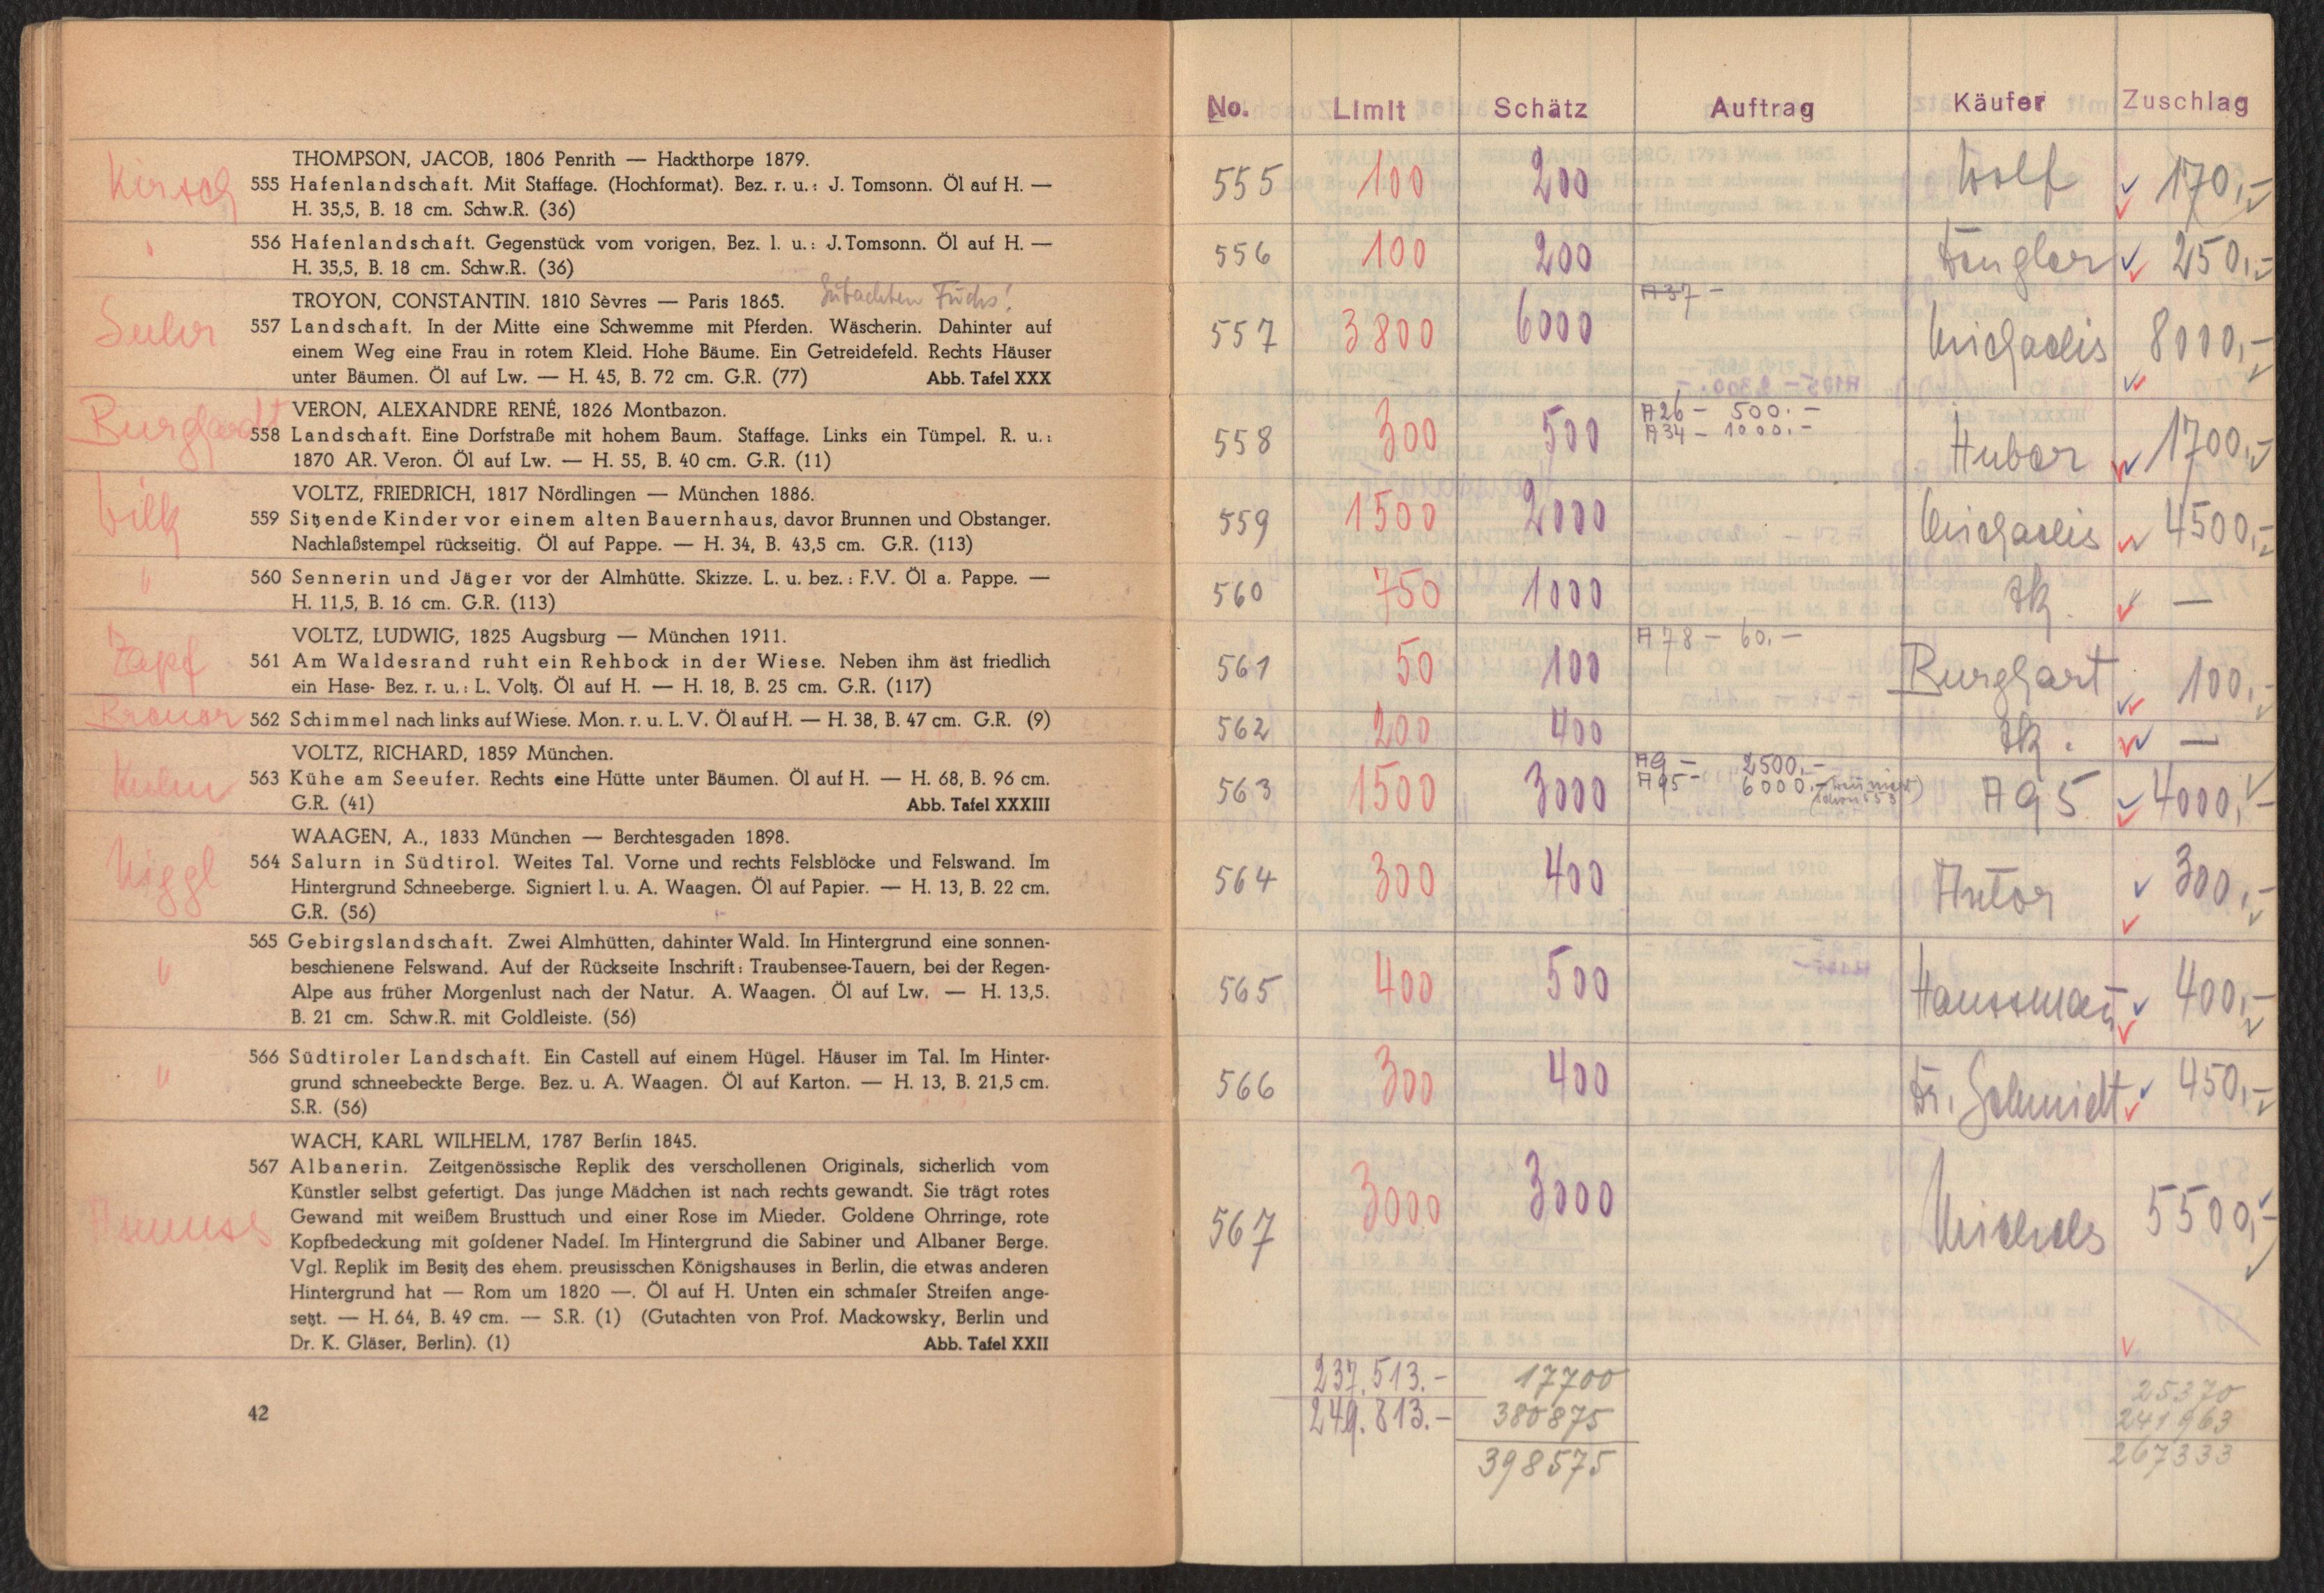 THOMPSON, JACOB, 1806 Penrith — Hackthorpe 1879.
Kirsch 555 Hafenlandschaft. Mit Staffage. (Hochformat). Bez. r. u.: J. Tomsonn. Öl auf H. —
H. 35,5, B. 18 cm. Schw.R. (36)
" 556 Hafenlandschaft. Gegenstück vom vorigen. Bez. l. u.: J. Tomsonn. Öl auf H. —
H. 35,5, B. 18 cm. Schw.R. (36)
TROYON, CONSTANTIN. 1810 Sèvres — Paris 1865. Gutachten Fuchs!
557 Landschaft. In der Mitte eine Schwemme mit Pferden. Wäscherin. Dahinter auf
einem Weg eine Frau in rotem Kleid. Hohe Bäume. Ein Getreidefeld. Rechts Häuser
unter Bäumen. Öl auf Lw. — H. 45, B. 72 cm. G.R. (77) Abb. Tafel XXX
VERON, ALEXANDRE RENÉ, 1826 Montbazon.
Burghardt 558 Landschaft. Eine Dorfstraße mit hohem Baum. Staffage. Links ein Tümpel. R. u.:
1870 AR. Veron. Öl auf Lw. — H. 55, B. 40 cm. G.R. (11)
VOLTZ, FRIEDRICH, 1817 Nördlingen — München 1886.
559 Sitzende Kinder vor einem alten Bauernhaus, davor Brunnen und Obstanger.
Nachlaßstempel rückseitig. Öl auf Pappe. — H. 34, B. 43,5 cm. G.R. (113)
" 560 Sennerin und Jäger vor der Almhütte. Skizze. L. u. bez.: F.V. Öl a. Pappe. —
H. 11,5, B. 16 cm. G.R. (113)
VOLTZ, LUDWIG, 1825 Augsburg — München 1911.
Zapf 561 Am Waldesrand ruht ein Rehbock in der Wiese. Neben ihm äst friedlich
ein Hase- Bez. r. u.: L. Voltz. Öl auf H. — H. 18, B. 25 cm. G.R. (117)
562 Schimmel nach links auf Wiese. Mon. r. u. L. V. Öl auf H. — H. 38, B. 47 cm. G.R. (9)
VOLTZ, RICHARD, 1859 München.
563 Kühe am Seeufer. Rechts eine Hütte unter Bäumen. Öl auf H. — H. 68, B. 96 cm.
G.R. (41) Abb. Tafel XXXIII
WAAGEN, A., 1833 München — Berchtesgaden 1898.
564 Salurn in Südtirol. Weites Tal. Vorne und rechts Felsblöcke und Felswand. Im
Hintergrund Schneeberge. Signiert l. u. A. Waagen. Öl auf Papier. — H. 13, B. 22 cm.
G.R. (56)
" 565 Gebirgslandschaft. Zwei Almhütten, dahinter Wald. Im Hintergrund eine sonnen-
beschienene Felswand. Auf der Rückseite Inschrift: Traubensee-Tauern, bei der Regen-
Alpe aus früher Morgenlust nach der Natur. A. Waagen. Öl auf Lw. — H. 13,5.
B. 21 cm. Schw.R. mit Goldleiste. (56)
" 566 Südtiroler Landschaft. Ein Castell auf einem Hügel. Häuser im Tal. Im Hinter-
grund schneebeckte Berge. Bez. u. A. Waagen. Öl auf Karton. — H. 13, B. 21,5 cm.
S.R. (56)
WACH, KARL WILHELM, 1787 Berlin 1845.
567 Albanerin. Zeitgenössische Replik des verschollenen Originals, sicherlich vom
Künstler selbst gefertigt. Das junge Mädchen ist nach rechts gewandt. Sie trägt rotes
Gewand mit weißem Brusttuch und einer Rose im Mieder. Goldene Ohrringe, rote
Kopfbedeckung mit goldener Nadel. Im Hintergrund die Sabiner und Albaner Berge.
Vgl. Replik im Besitz des ehem. preusisschen Königshauses in Berlin, die etwas anderen
Hintergrund hat — Rom um 1820 —. Öl auf H. Unten ein schmaler Streifen ange-
setzt. — H. 64, B. 49 cm. — S.R. (1) (Gutachten von Prof. Mackowsky, Berlin und
Dr. K. Gläser, Berlin). (1) Abb. Tafel XXII
42
No. Limit Schätz Auftrag Käufer Zuschlag
555 100 200 Wolf 170,-
556 100 200 250,-
557 3800 6000 A37 - Michaelis 8000,-
558 300 500 A26 - 500.- Huber 1700,-
A34 - 1000.-
559 1500 2000 Michaelis 4500,-
560 750 1000 Zk. —
561 50 100 A78 - 60.- Burghart 100,-
562 200 400 Zk. —
563 1500 3000 A9 - 2500,- A95 4000,-
A95 - 6000.-
564 300 400 300,-
565 400 500 Haussmañ 400,-
566 300 400 Dr. Schmidt 450,-
567 3000 3000 5500,-
237.513.- 17700 25370
249.813.- 380875 241963
398575 267333